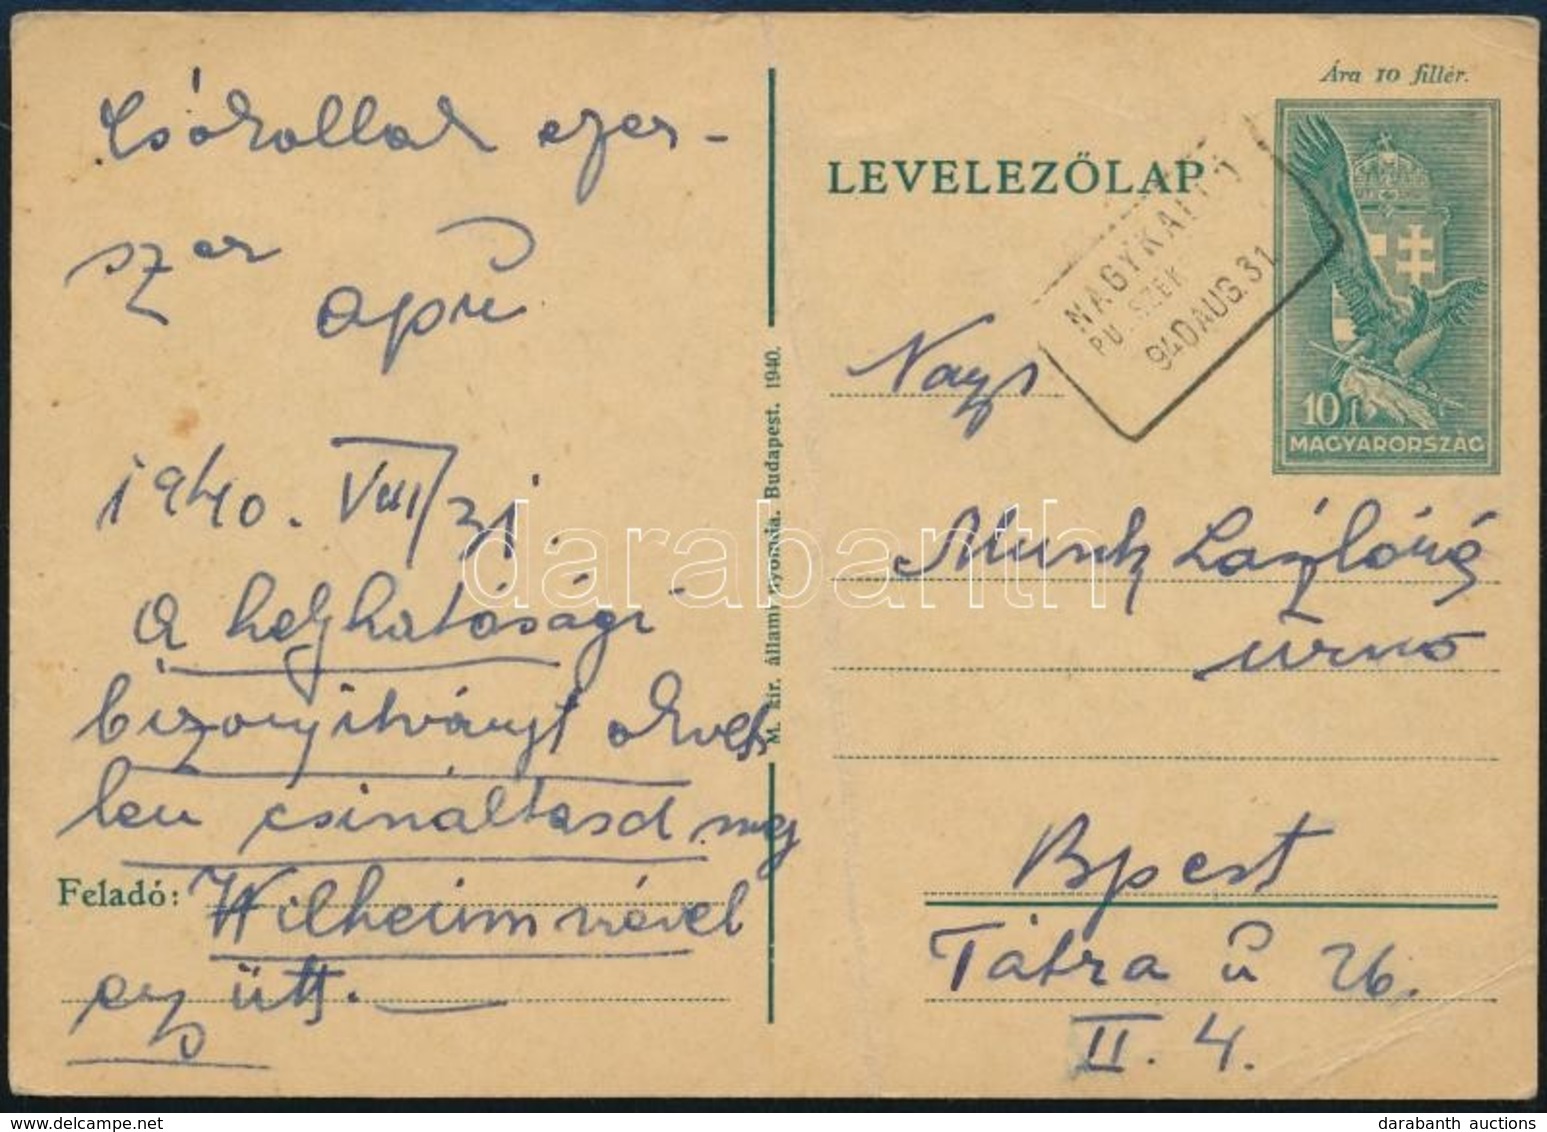 Csókollak ezer-
szer
apu
1940. VIII/31.
A helyhatósági
bizonyítványt okvet
len csináltasd meg
Feladó: Wilheim nével
együtt.
M. kir. állami nyomda. Budapest. 1940.
Ára 10 fillér.
LEVELEZŐLAP
NAGYKÁLLÓ
940 AUG. 31
10 f
MAGYARORSZÁG
Nags
Munk Lászlóné
úrnő
Bpest
Tátra u 26.
II. 4.
darabanth
darabanth auctions